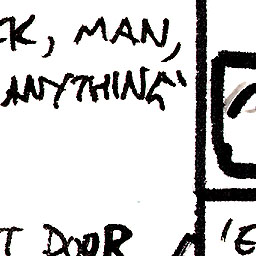 CK, MAN,
ANYTHING"
T DOOR
'E